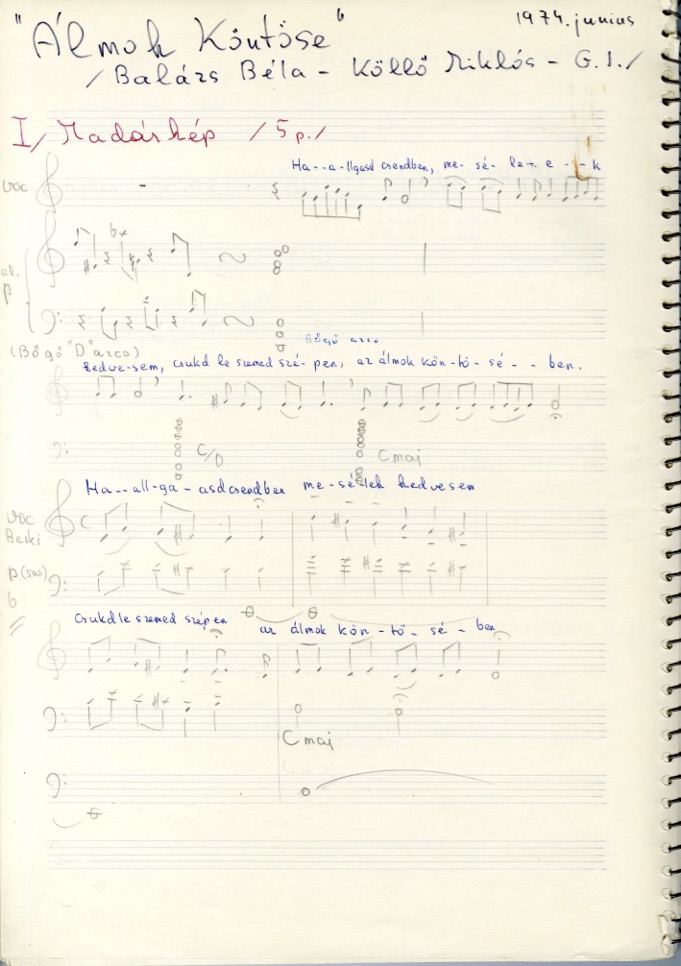 "Álmok Köntöse" 1974. junius
/ Balázs Béla - Köllő Miklós - G. I. /
I/ Madárkép / 5 p. /
Ha--a-llgasd csendben, me- sé- le-- e - - k
voc
el. p
Bőgő arco
(Bőgő "D" arco)
kedve-sem, csukd le szemed szé- pen, az álmok kön-tö-sé- - ben.
C/D
C maj
Ha--all-ga-asd csendben me-sé-lek kedvesem
voc
Berki
p (sol)
b
Csukd le szemed szépen az álmok kön-tö-sé-ben
C maj